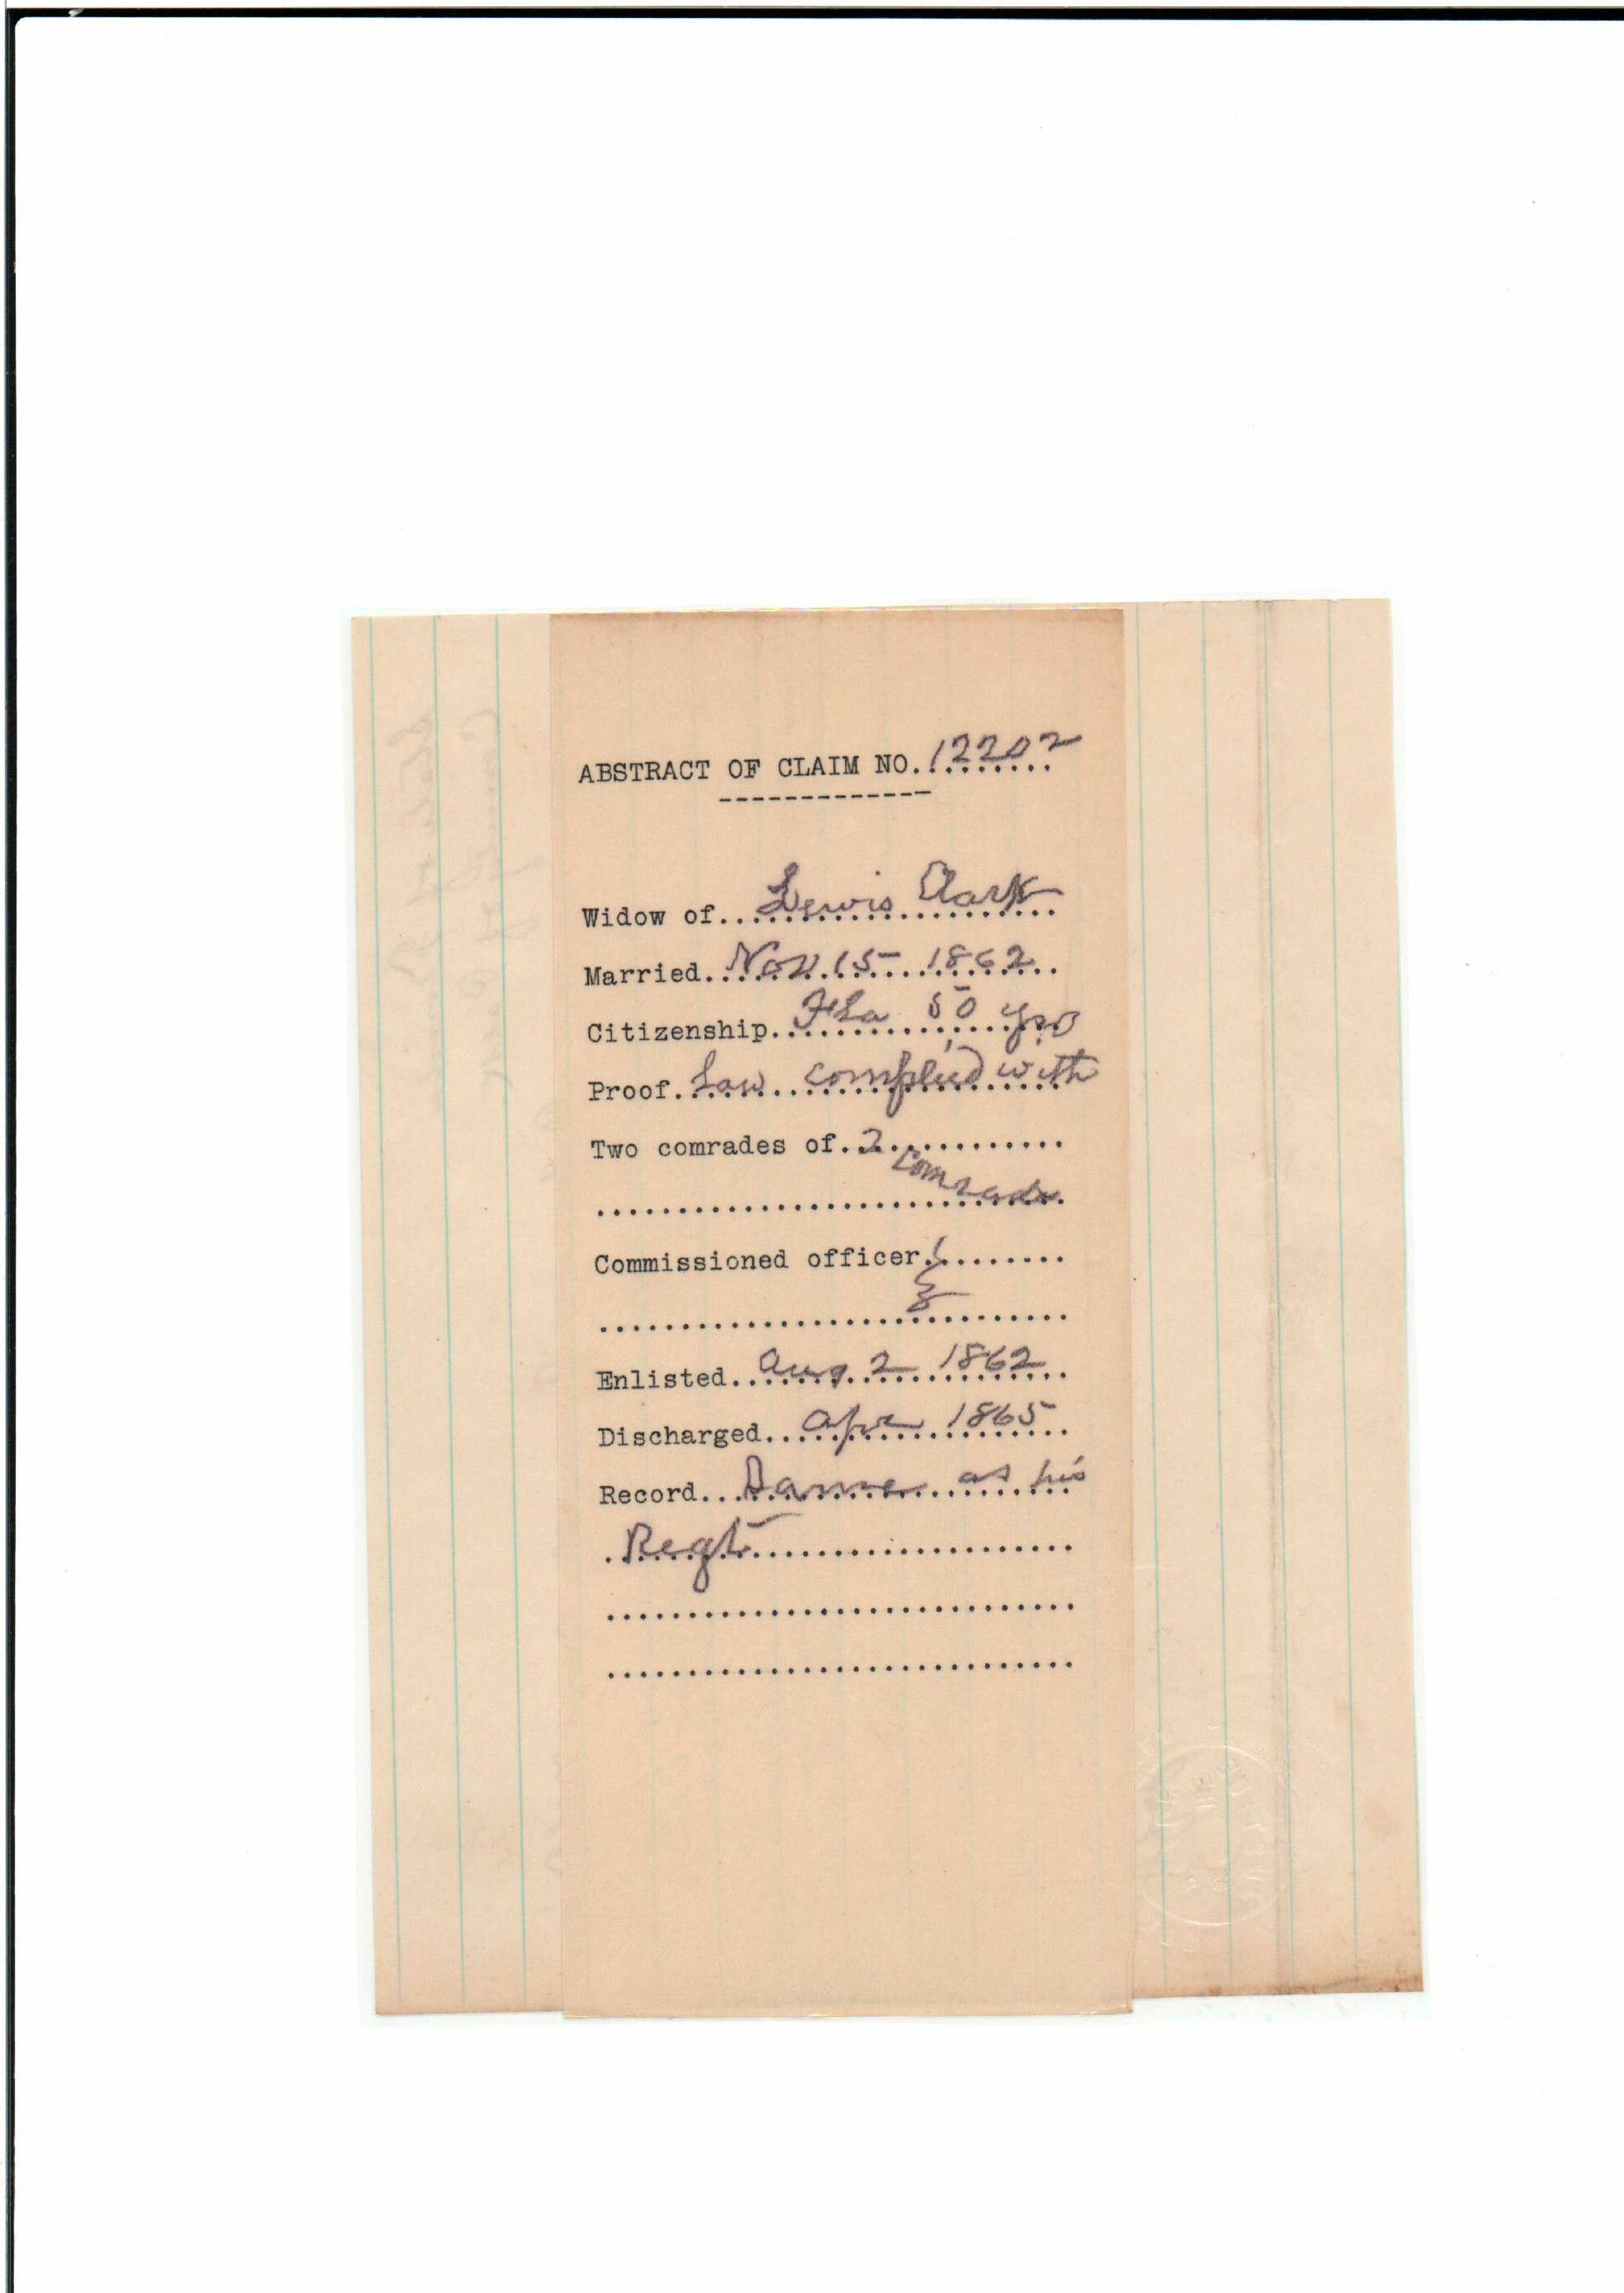 ABSTRACT OF CLAIM NO. 12202
Widow of Lewis Clark
Married Nov 15 1862
Citizenship Fla 50 yrs
Proof Law complied with
Two comrades of 2
Comrades
Commissioned officer
Enlisted Aug 2 1862
Discharged Apr 1865
Record Same as his
Regt